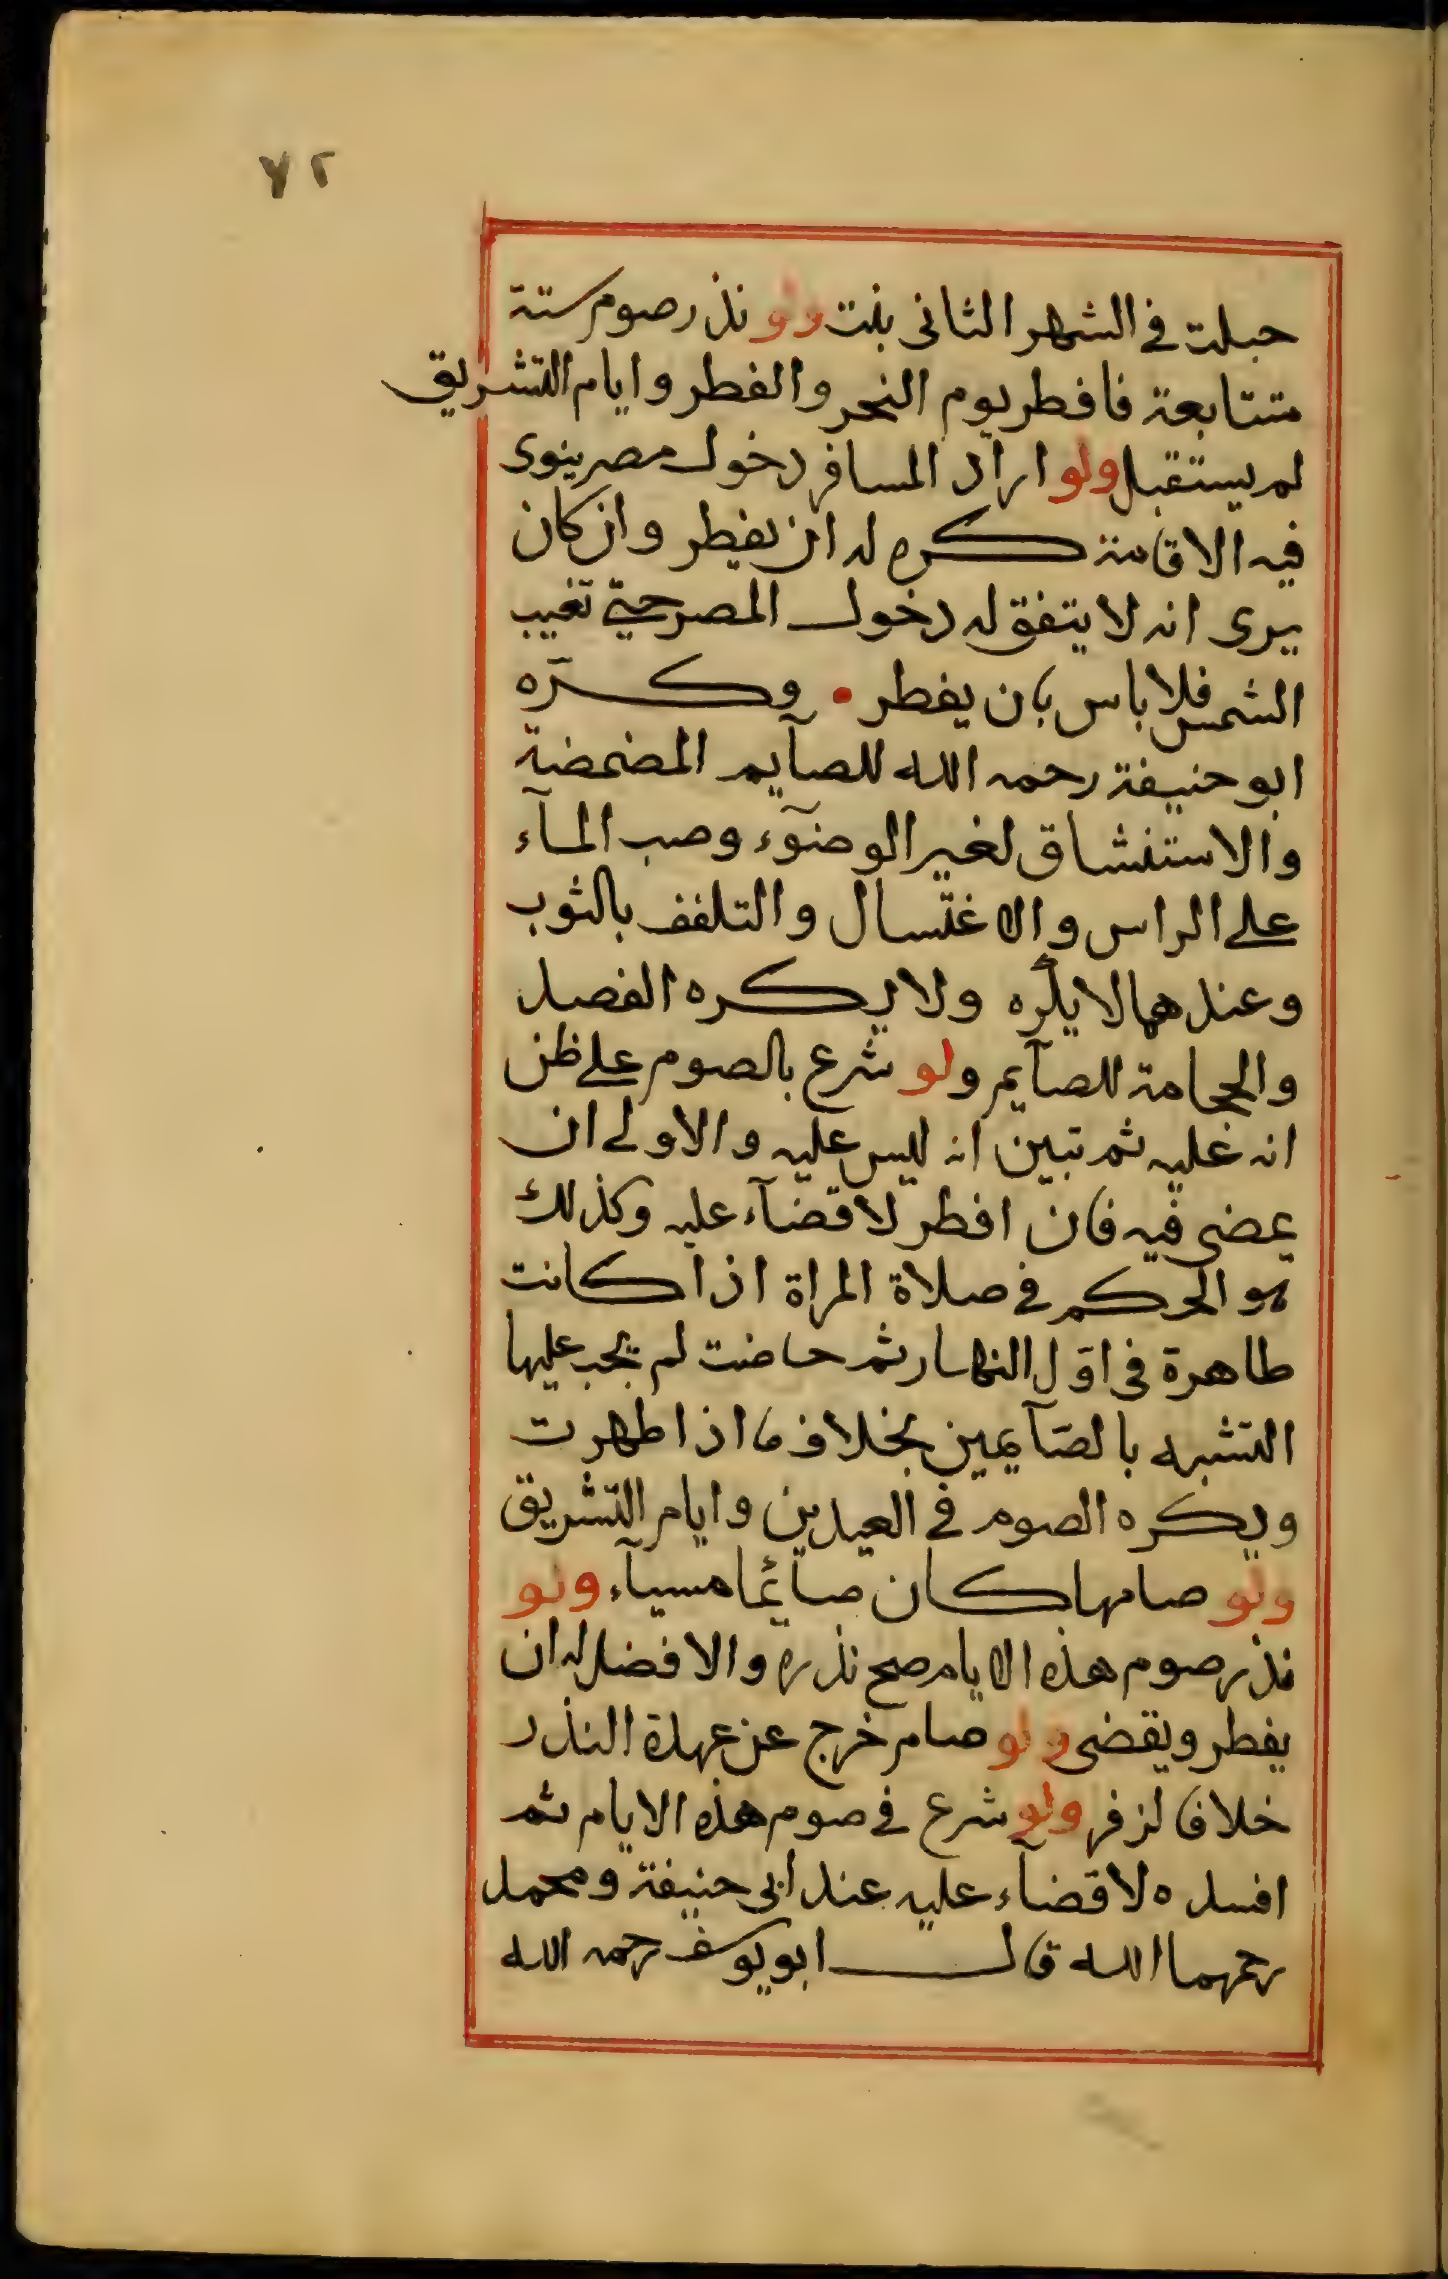 ٧٢
حبلت في الشهر الثانى بنت ولو نذر صوم سنة
متتابعة فافطر يوم النحر والفطر وايام التشريق
لم يستقبل ولو اراد المسافر دخول مصر ينوى
فيه الاقامة كره له ان يفطر وان كان
يرى انه لا يتفق له دخول المصر حتى تغيب
الشمس فلا باس بان يفطر • وكره
ابو حنيفة رحمه الله للصآيم المضمضة
والاستنشاق لغير الوضوء وصب المآء
على الراس والاغتسال والتلفف بالثوب
وعندهما لا يكره ولا يكره الفصد
والحجامة للصآيم ولو شرع بالصوم على ظن
انه عليه ثم تبين انه ليس عليه والاولى ان
يمضى فيه فان افطر لا قضآء عليه وكذلك
هو الحكم في صلاة المراة اذا كانت
طاهرة في اوّل النهار ثم حاضت لم يجب عليها
التشبه بالصّآيمين بخلاف ما اذا طهرت
ويكره الصوم في العيدين وايام التشريق
ولو صامها كان صائما مسيآء ولو
نذر صوم هذه الايام صح نذره والافضل له ان
يفطر ويقضى ولو صام خرج عن عهدة النذر
خلاف لزفر ولو شرع في صوم هذه الايام ثم
افسده لا قضآء عليه عند ابى حنيفة ومحمد
رحمهما الله قال ابو يوسف رحمه الله